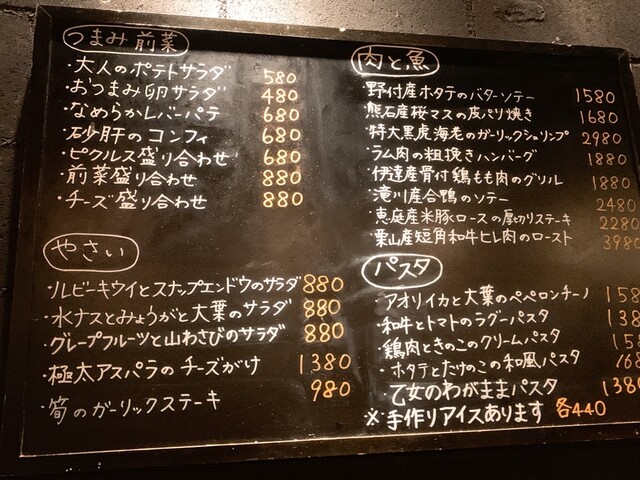 つまみ 前菜
・大人のポテトサラダ 580
・おつまみ卵サラダ 480
・なめらかレバーパテ 680
・砂肝のコンフィ 680
・ピクルス盛り合わせ 680
・前菜盛り合わせ 880
・チーズ盛り合わせ 880
やさい
・ルビーキウイとスナップエンドウのサラダ 880
・水ナスとみょうがと大葉のサラダ 880
・グレープフルーツと山わさびのサラダ 880
・極太アスパラのチーズがけ 1380
・筍のガーリックステーキ 980
肉と魚
・野付産ホタテのバターソテー 1580
・熊石産桜マスの皮パリ焼き 1680
・特大黒虎海老のガーリックシュリンプ 2980
・ラム肉の粗挽きハンバーグ 1880
・伊達産骨付鶏もも肉のグリル 1880
・滝川産合鴨のソテー 2480
・恵庭産米豚ロースの厚切りステーキ 2280
・栗山産短角和牛ヒレ肉のロースト 3980
パスタ
・アオリイカと大葉のペペロンチーノ 158
・和牛とトマトのラグーパスタ 138
・鶏肉ときのこのクリームパスタ 158
・ホタテとたけのこの和風パスタ 168
・乙女のわがままパスタ 1380
※手作りアイスあります 各440